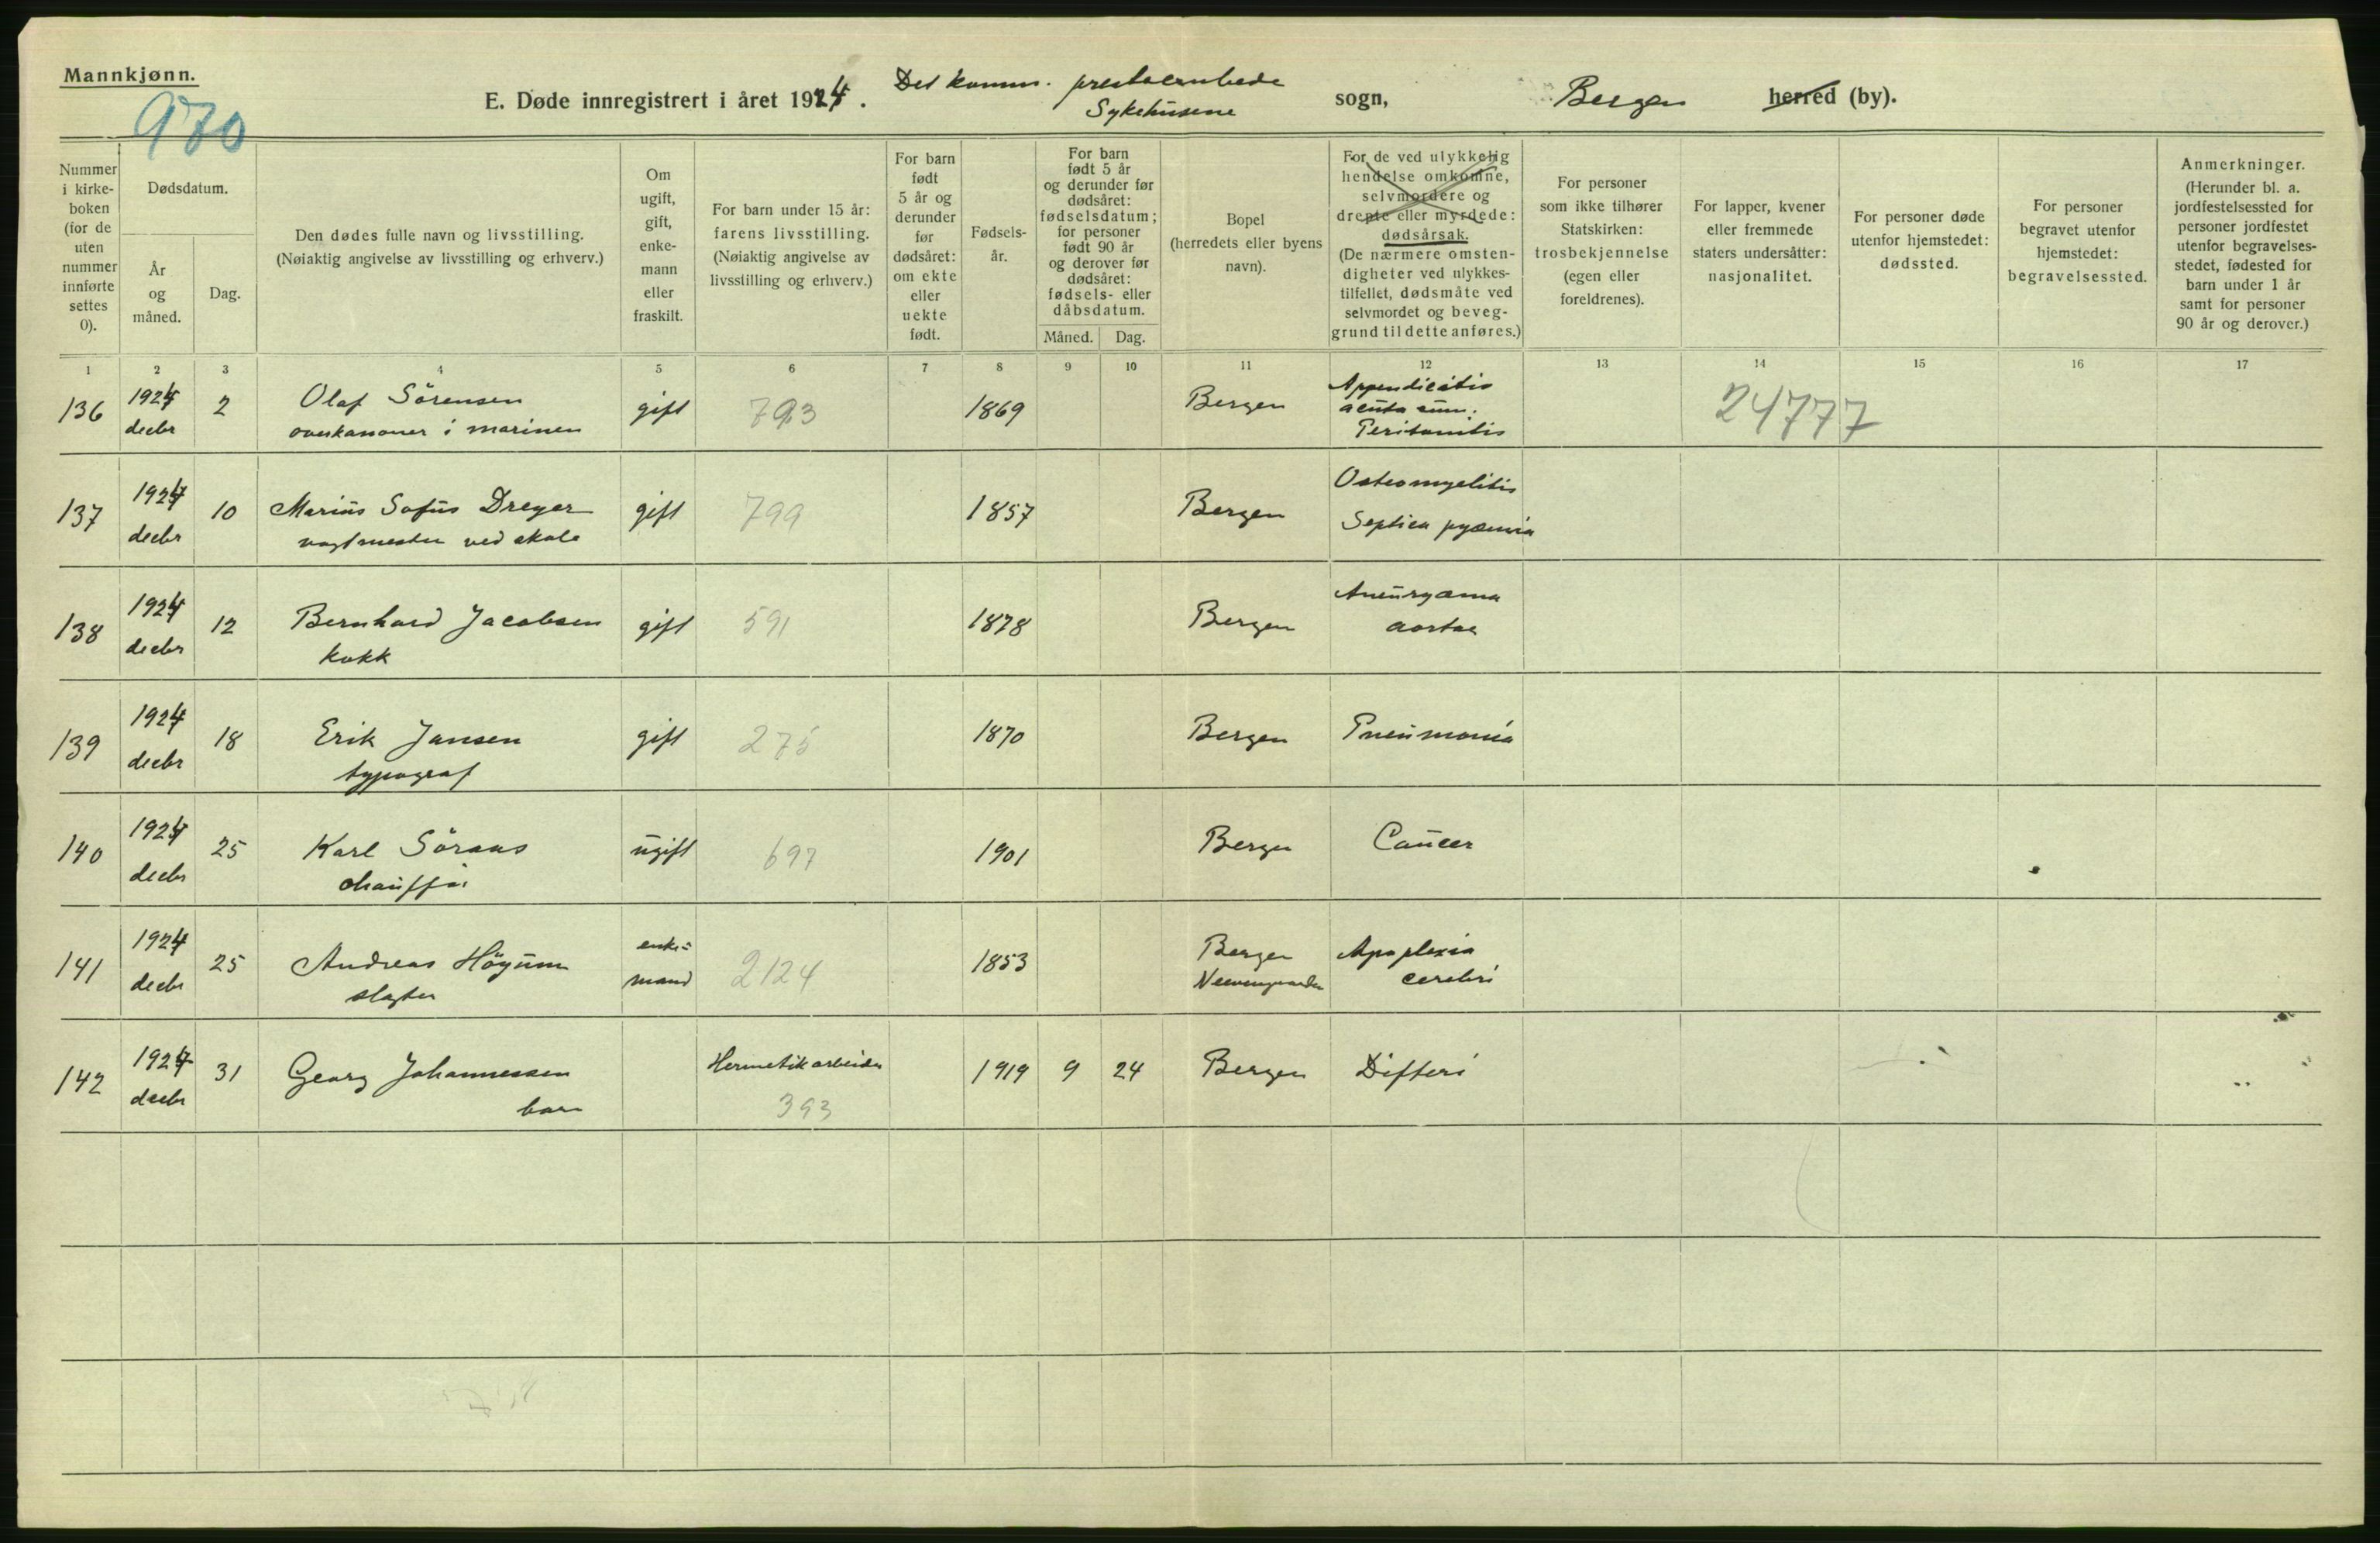 Mannkjønn.
970
E. Døde innregistrert i året 1924.
Det komm. presteembede
Sykehusene
sogn,
Bergen
herred (by).
Nummer i kirke-boken (for de uten nummer innførte settes 0).
Dødsdatum.
År og måned.
Dag.
Den dødes fulle navn og livsstilling.
(Nøiaktig angivelse av livsstilling og erhverv.)
Om ugift, gift, enke-mann eller fraskilt.
For barn under 15 år: farens livsstilling.
(Nøiaktig angivelse av livsstilling og erhverv.)
For barn født 5 år og derunder før dødsåret: om ekte eller uekte født.
Fødsels-år.
For barn født 5 år og derunder før dødsåret: fødselsdatum; for personer født 90 år og derover før dødsåret: fødsels- eller dåbsdatum.
Måned.
Dag.
Bopel
(herredets eller byens navn).
For de ved ulykkelig hendelse omkomne, selvmordere og drepte eller myrdede: dødsårsak.
(De nærmere omsten-digheter ved ulykkes-tilfellet, dødsmåte ved selvmordet og beveg-grund til dette anføres.)
For personer som ikke tilhører Statskirken: trosbekjennelse (egen eller foreldrenes).
For lapper, kvener eller fremmede staters undersåtter: nasjonalitet.
For personer døde utenfor hjemstedet: dødssted.
For personer begravet utenfor hjemstedet: begravelsessted.
Anmerkninger.
(Herunder bl. a. jordfestelsessted for personer jordfestet utenfor begravelses-stedet, fødested for barn under 1 år samt for personer 90 år og derover.)
1 2 3 4 5 6 7 8 9 10 11 12 13 14 15 16 17
136 1924 decbr 2 Olaf Sörensen overkanoner i marinen gift 793 1869 Bergen Appendicitis acuta cum. Peritonitis 24777
137 1924 decbr 10 Marius Sofus Dreyer vagtmester ved skole gift 799 1857 Bergen Osteomyelitis Septica pyæmia
138 1924 decbr 12 Bernhard Jacobsen kokk gift 591 1878 Bergen Aneurysma aortae
139 1924 decbr 18 Erik Jansen typograf gift 275 1870 Bergen Pneumonia
140 1924 decbr 25 Karl Söraas chaufför ugift 697 1901 Bergen Cancer
141 1924 decbr 25 Andreas Höyum slagter enke-mand 2124 1853 Bergen Neevengaarden Apoplexia cerebri
142 1924 decbr 31 Georg Johannessen barn Hermetikarbeider 393 1919 9 24 Bergen Difteri